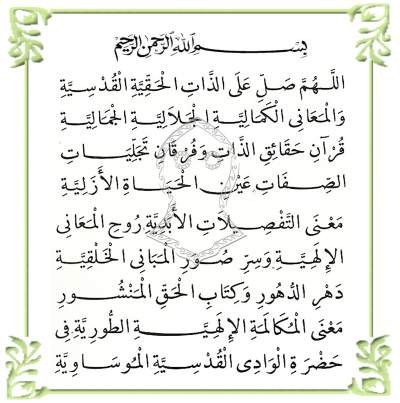 بِسْمِ اللهِ الرَّحْمٰنِ الرَّحِيْمِ
اَللّٰهُمَّ صَلِّ عَلَى الذَّاتِ الْحَقِّيَّةِ الْقُدْسِيَّةِ
وَالْمَعَانِى الْكَمَالِيَّةِ الْجَلَالِيَّةِ الْجَمَالِيَّةِ
قُرْآنِ حَقَائِقِ الذَّاتِ وَفُرْقَانِ تَجَلِّيَاتِ
الصِّفَاتِ عَيْنِ الْحَيَاةِ الْأَزَلِيَّةِ
مَعْنَى التَّفْصِيلَاتِ الْأَبَدِيَّةِ رُوحِ الْمَعَانِى
الْإِلٰهِيَّةِ وَسِرِّ صُوَرِ الْمَبَانِى الْخَلْقِيَّةِ
دَهْرِ الدُّهُورِ وَكِتَابِ الْحَقِّ الْمَنْشُورِ
مَعْنَى الْمُكَالَمَةِ الْإِلٰهِيَّةِ الطُّورِيَّةِ فِى
حَضْرَةِ الْوَادِى الْقُدْسِيَّةِ الْمُوسَاوِيَّةِ